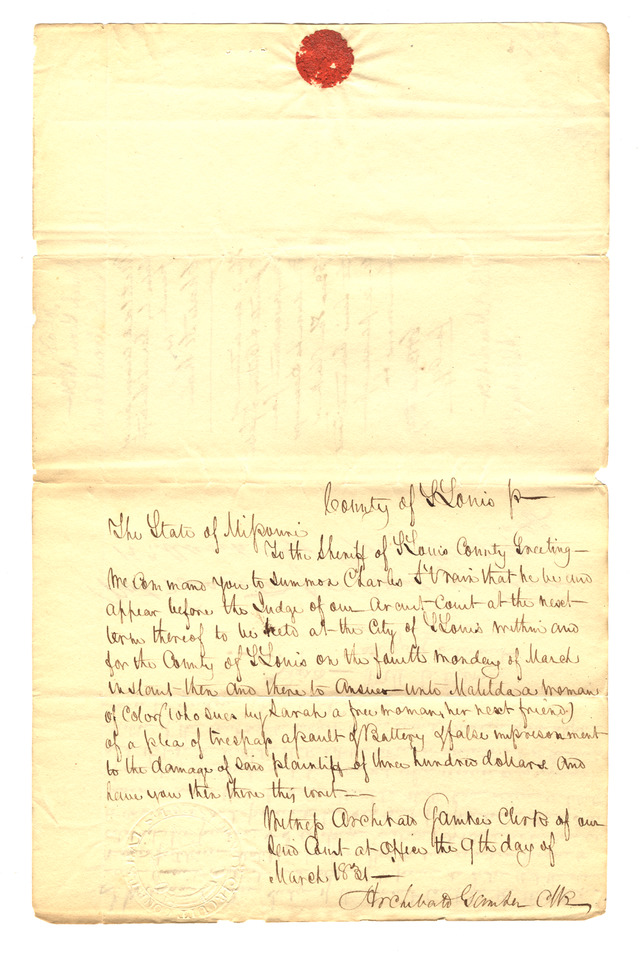 County of St Louis ss
The State of Missouri
To the Sheriff of St Louis County Greeting—
We Command You to Summon Charles St Vrain that he be and
appear before the Judge of our Circuit Court at the next
term thereof to be held at the City of St Louis within and
for the County of St Louis on the fourth monday of March
instant then and there to answer unto Matilda a woman
of Color (who sues by Sarah a free woman, her next friend)
of a plea of trespass assault & Battery & false imprisonment
to the damage of said plaintiff of three hundred dollars. And
have you then there this writ—
Witness Archibald Gamble Clerk of our
Said Court at office the 9th day of
March 1831—
Archibald Gamble Clk